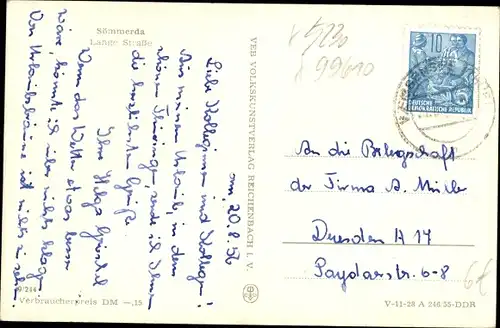 Sömmerda
Lange Straße
am, 20.8.56
Liebe Kolleginnen und Kollegen!
Aus meinem Urlaub, in dem
schönen Thüringen, sende ich Ihnen
die herzlichsten Grüße.
Ihre Helga
Wenn das Wetter etwas besser
wäre, könnte ich über nichts klagen.
Von Urlaubsbräune ist nichts zu sehen.
9/244
Verbraucherpreis DM -,15
VEB VOLKSKUNSTVERLAG REICHENBACH I. V.
5230
99610
10
DEUTSCHE
DEMOKRATISCHE REPUBLIK
An die Belegschaft
der Firma A. Müller
Dresden A 17
Paydaerstr. 6-8
6€
V-11-28 A 246/55-DDR